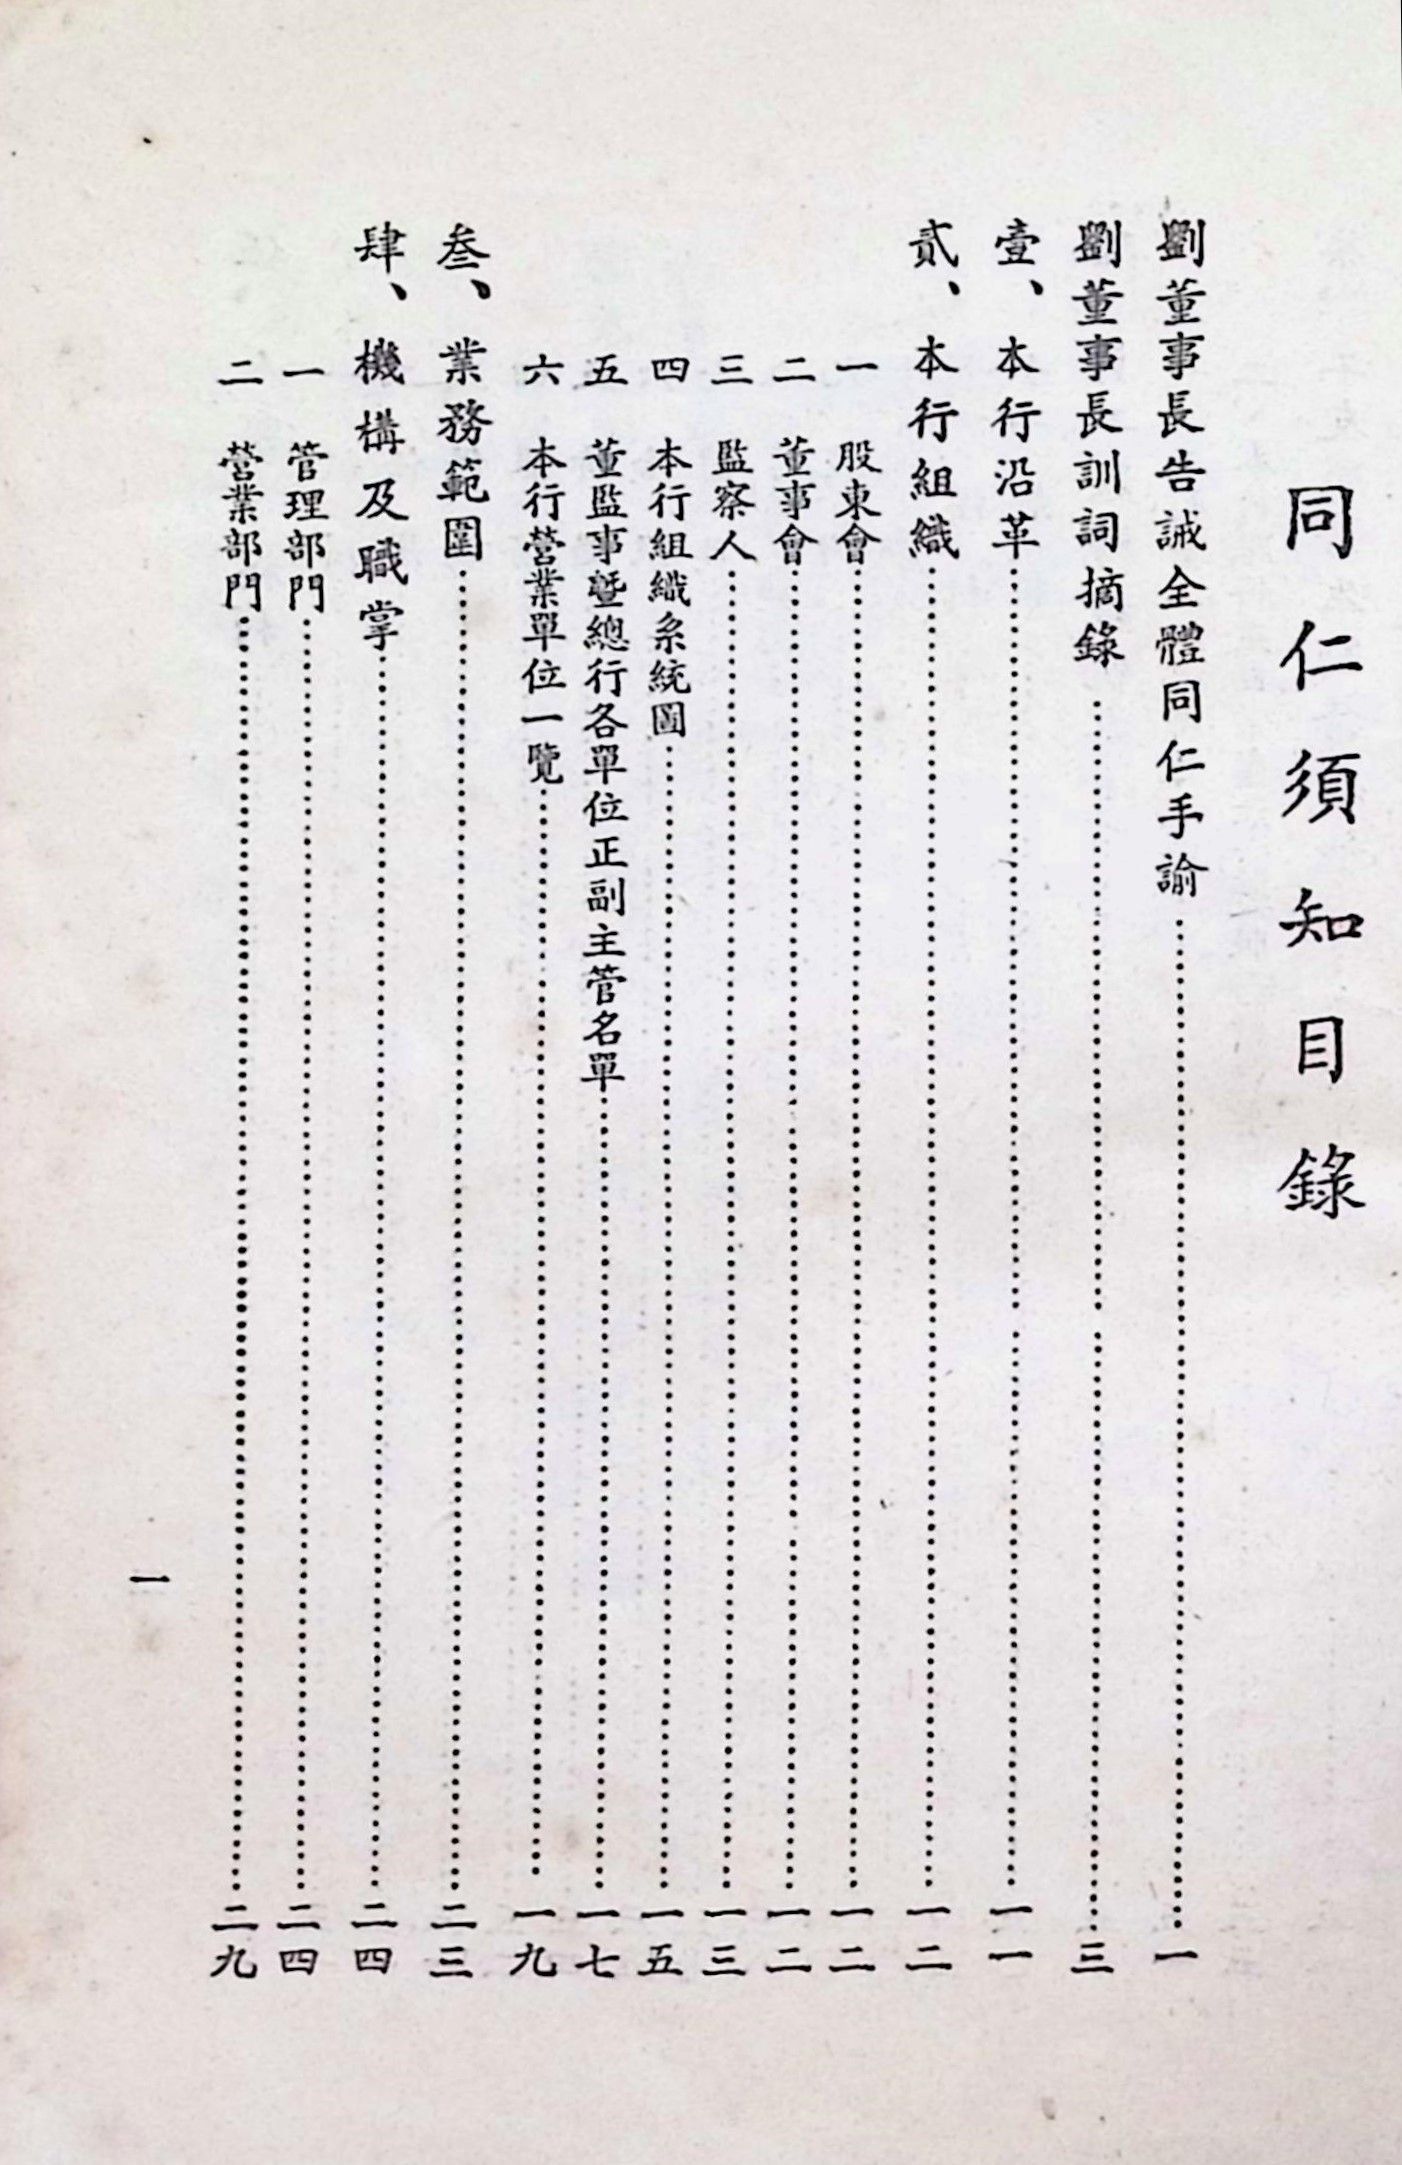 同仁須知目錄
劉董事長告誡全體同仁手諭⋯⋯⋯⋯一
劉董事長訓詞摘錄⋯⋯⋯⋯三
壹、本行沿革⋯⋯⋯⋯一一
貳、本行組織⋯⋯⋯⋯一二
一 股東會⋯⋯⋯⋯一二
二 董事會⋯⋯⋯⋯一二
三 監察人⋯⋯⋯⋯一三
四 本行組織系統圖⋯⋯⋯⋯一五
五 董監事暨總行各單位正副主管名單⋯⋯⋯⋯一七
六 本行營業單位一覽⋯⋯⋯⋯一九
叁、業務範圍⋯⋯⋯⋯二三
肆、機構及職掌⋯⋯⋯⋯二四
一 管理部門⋯⋯⋯⋯二四
二 營業部門⋯⋯⋯⋯二九
一